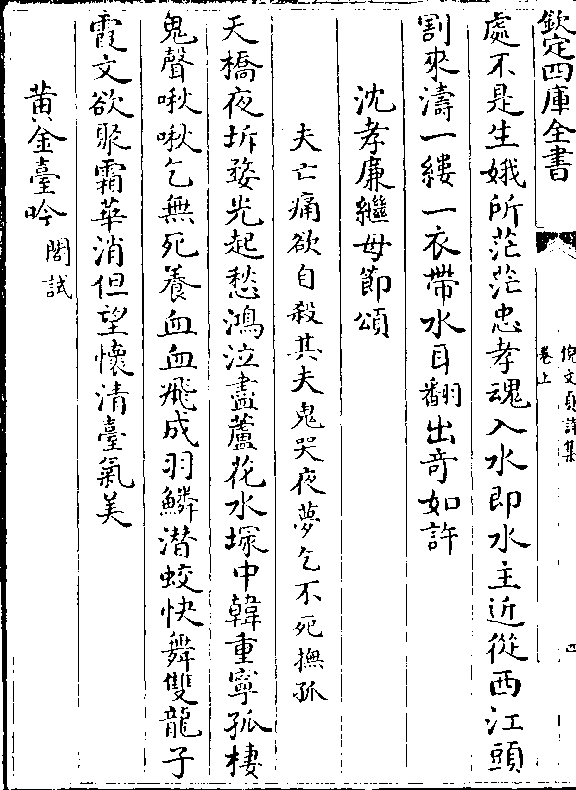 欽定四庫全書
倪文貞詩集
卷上
四
處不是生娥所茫茫忠孝魂入水即水主近從西江頭
割來濤一縷一衣帶水耳翻出竒如許
沈孝廉繼母節頌
夫亡痛欲自殺其夫鬼哭夜夢乞不死撫孤
天橋夜坼婺光起愁鴻泣盡蘆花水塚中韓重寧孤棲
鬼聲啾啾乞無死養血血飛成羽鱗潜蛟快舞雙龍子
霞文欲聚霜華消但望懷清臺氣美
黄金臺吟 閣試